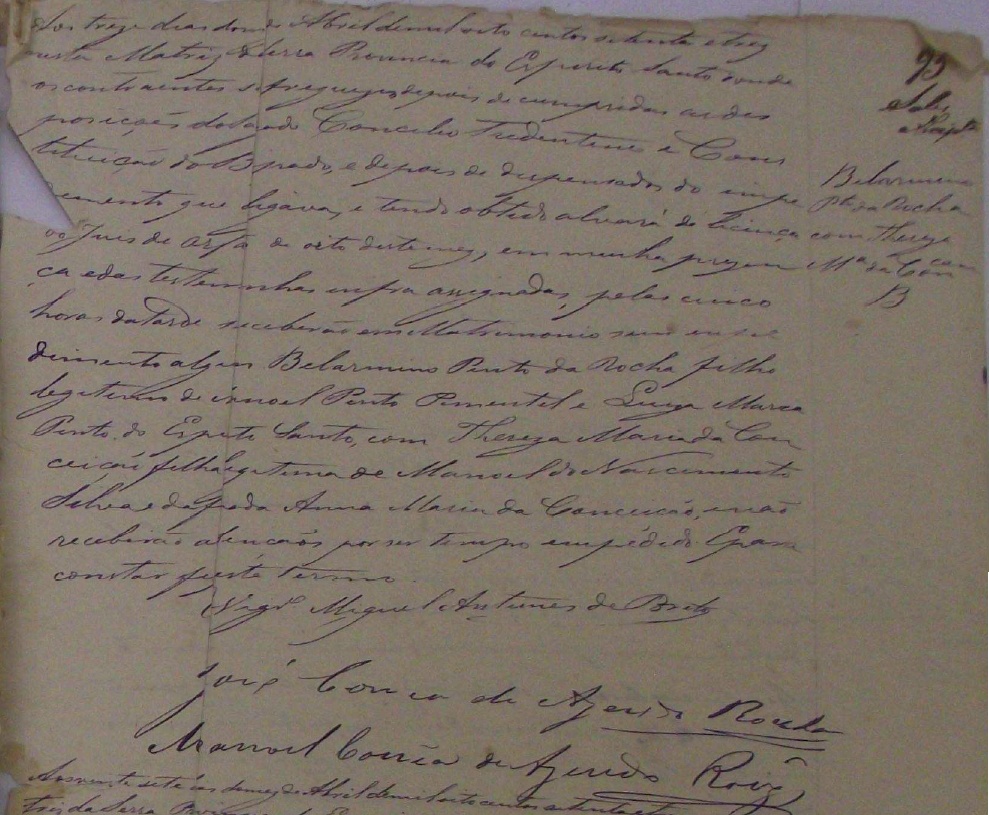 Aos treze dias do mes Abril de mil oito centos setenta e trez
nesta Matriz da Serra Provincia do Espirito Santo donde
os contraentes são freguezes, depois de cumpridas as des
posições do Sagrado Concilio Tredentino e Cons
tituição do Bispado, e depois de dispensados do empe
demento que ligava, e tendo obtido alvará de licença
do Juis de orfã de oito deste mez, em minha prezen
ça e das testeminhas infra assignadas, pelas cinco
horas da tarde receberão em Matrimonio sem
dimento algum Belarmino Pinto da Rocha filho
legitimo de Manoel Pinto Pimentel e Luiza Maria
Pinto do Espirito Santo, com Thereza Maria da Con
ceição filha legitima de Manoel do Nascimento
Silva e da finada Anna Maria da Conceição, e não
receberão a bençãos por ser tempo empedido. E para
constar fiz este termo.
Vigrº Miguel Antunes de Brito
José Corrêa de Azeredo Rocha
Manoel Corrêa de Azeredo Roiz
Aos vinte sete dias do mez de Abril de mil oito centos setenta e
triz da Serra
93
Belarmino
Pto da Rocha
com Thereza
Mª da Con
B